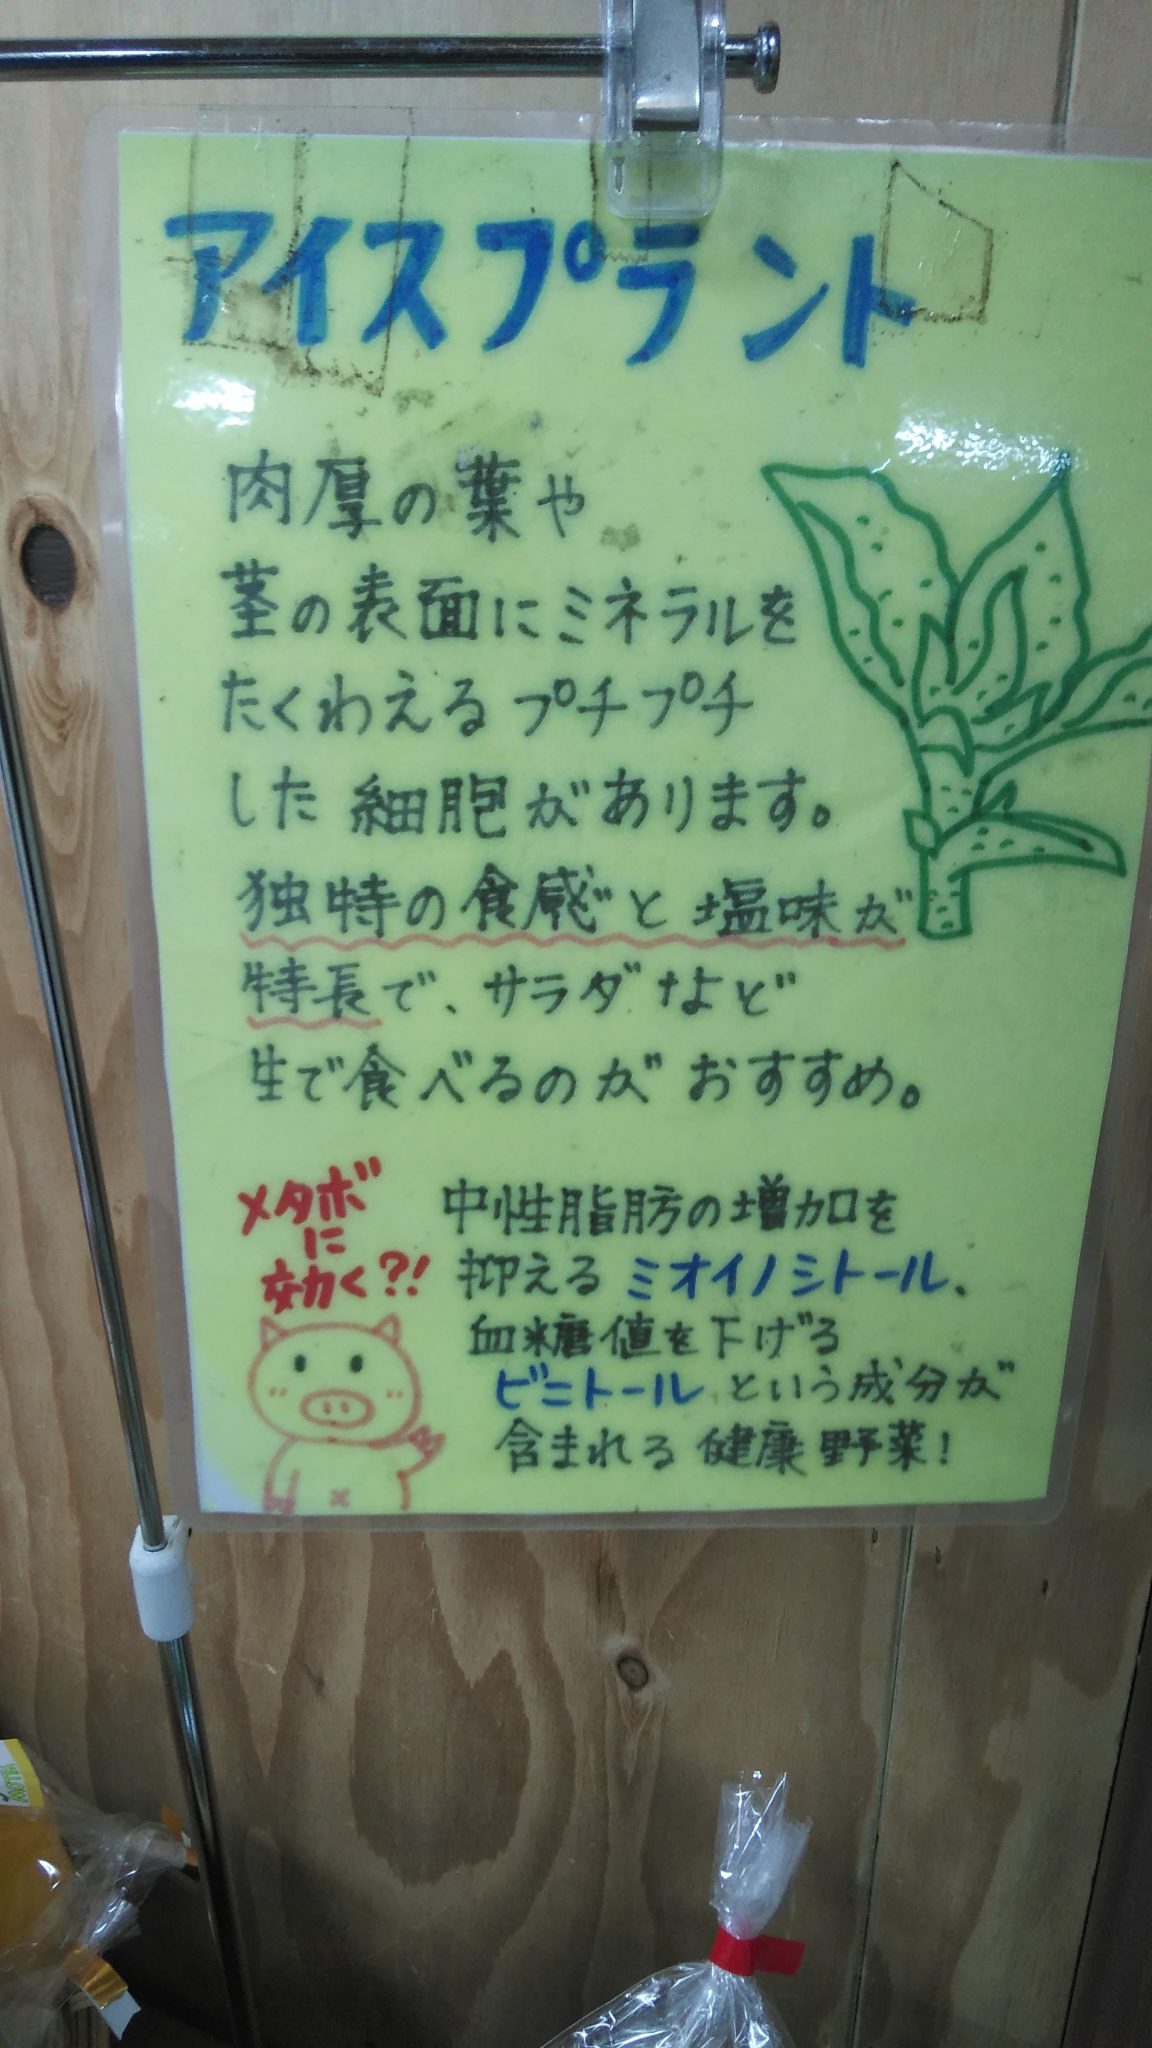 アイスプラント
肉厚の葉や
茎の表面にミネラルを
たくわえるプチプチ
した細胞があります。
独特の食感と塩味が
特長で、サラダなど
生で食べるのがおすすめ。
メタボ
に
効く?!
中性脂肪の増加を
抑えるミオイノシトール、
血糖値を下げる
ピニトールという成分が
含まれる健康野菜!